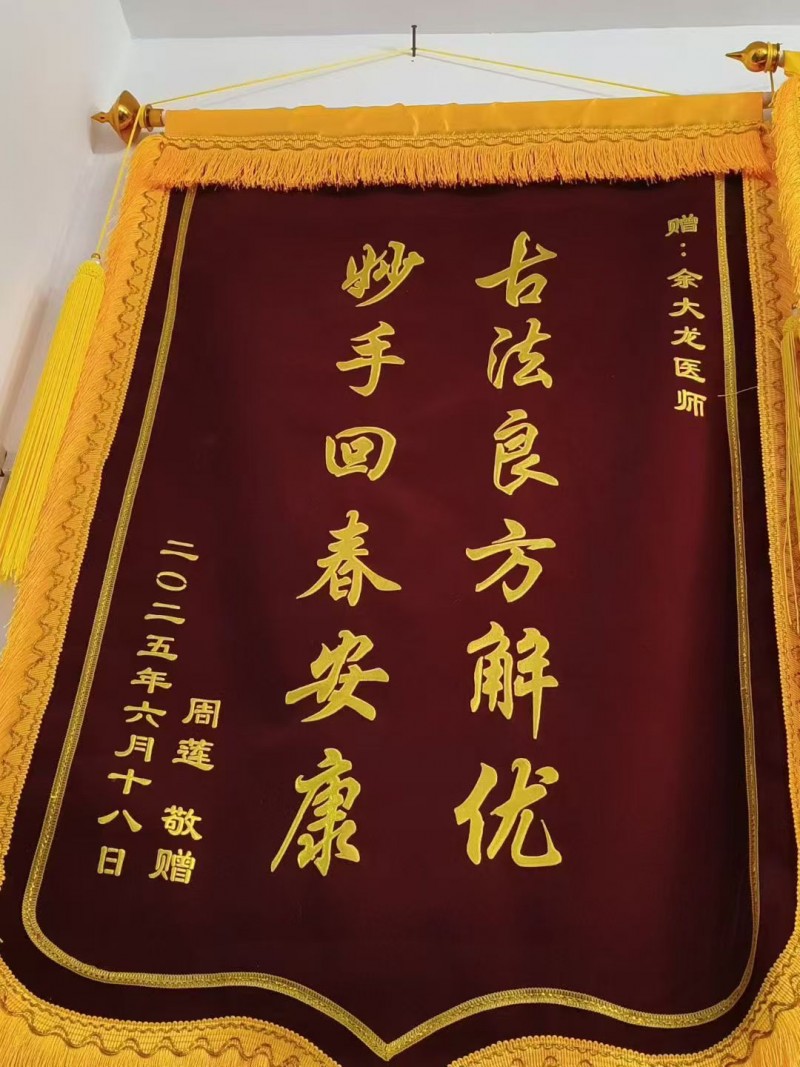 赠：余大龙医师
古法良方解优
妙手回春安康
周莲 敬赠
二〇二五年六月十八日